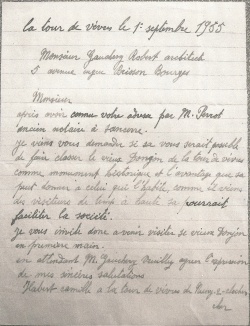 la tour de vèvre le 1er septembre 1955
Monsieur Gauchery Robert architect
5 avenue Brisson Bourges
Monsieur
après avoir connu votre adresse par M. Perrot
ancien notaire à sancerre.
je viens vous demander si se vous serait possible
de faire classer le vieux Donjon de la tour de vèvre
comme monument historique et l'avantage que sa
peut donner à celui qui l'habite, comme il vient
des visiteurs de temp à haute sa pourrait
faciliter la société.
je vous invite donc a venir visiter se vieux Donjon
en première main.
en attendant M. Gauchery veuillez agréer l'expression
de mes sincères salutations
Habert camille a la tour de vèvre de
cher